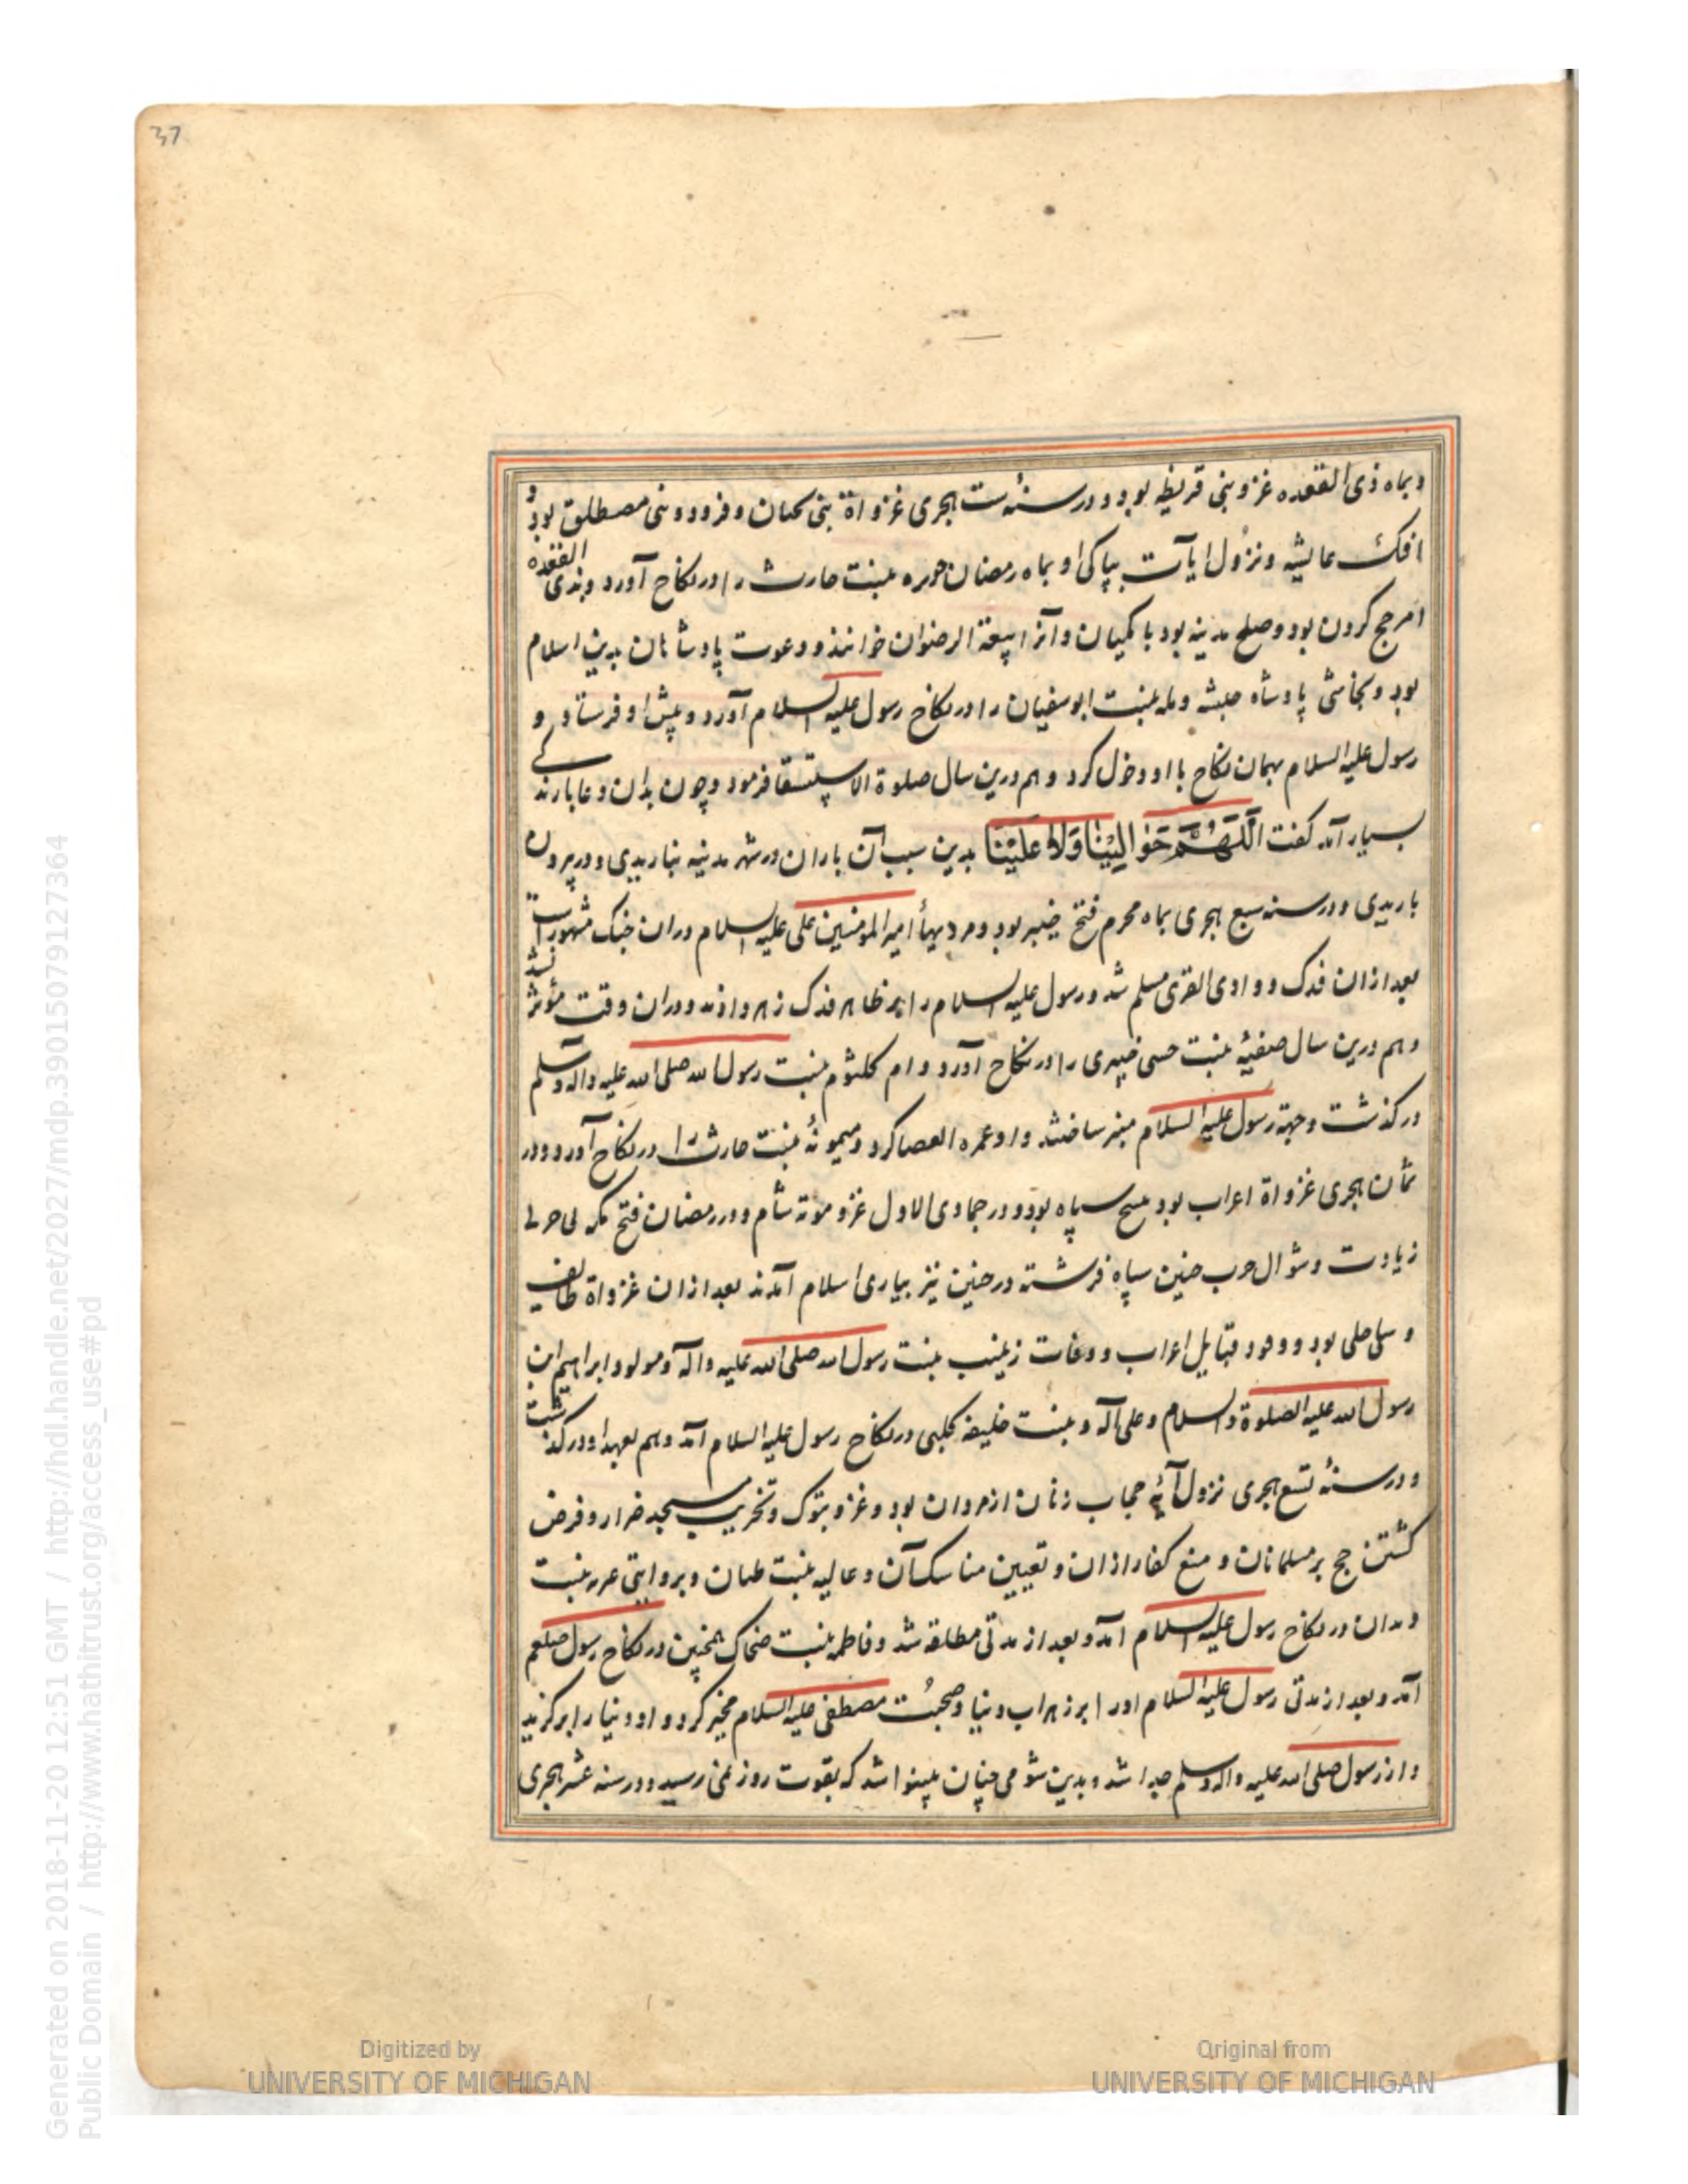 37
وبماه ذی القعده غزو بنی قریظه بود و در سنهٔ ست هجری غزواة بنی لحیان و فرود و بنی مصطلق بود و
افک عایشه و نزول ایات بپاکی او بماه رمضان جویره بنت حارث را در نکاح آورد وبذی القعده
امر حج کردن بود و صلح مدینه بود با مکیان و آنرا بیعة الرضوان خوانند و دعوت پادشاهان بدین اسلام
بود و نجاشی پادشاه حبشه و مله بنت ابو سفیان را در نکاح رسول علیه السلام آورد و پیش او فرستاد و
رسول علیه السلام بهمان نکاح با او دخول کرد و هم درین سال صلوة الاستسقا فرمود وچون بدان دعا بارندکی
بسیار آمد گفت اَللّهُمَّ حَوالَیْنا وَلا عَلَیْنا بدین سبب آن باران در شهر مدینه نباریدی و در بیرون
باریدی و در سنه سبع هجری بماه محرم فتح خیبر بود و مردیهأ امیر المومنین علی علیه السلام دران جنک مشهورست
بعد ازان فدک و وادی القری مسلم شد و رسول علیه السلام را بر ظاهر فدک زهر دادند و دران وقت مؤثر نشد
وهم درین سال صفیهٔ بنت حسی خیبری را در نکاح آورد و ام کلثوم بنت رسول الله صلی الله علیه واله وسلم
در کذشت وجهة رسول علیه السلام منبر ساختند و او عمره القصا کرد و میمونهٔ بنت حارث را در نکاح آورد و در
ثمان هجری غزواة اعراب بود سپاه بود و در جمادی الاول غزو موته شام و در رمضان فتح مکه بی حربی
زیادت و شوال حرب حنین سپاه فرشته در حنین نیز بیاری اسلام آمدند بعد ازان غزواة طایف
و بود و وفود قبایل اعراب و وفات زینب بنت رسول الله صلی الله علیه واله و مولود ابراهیم ابن
رسول الله علیه الصلوة والسلام وعلی آله و بنت خلیفه کلبی در نکاح رسول علیه السلام آمد وهم بعهد او در کذشت
و در سنهٔ تسع هجری نزول آیهٔ حجاب زنان از مردان بود و غزو تبوک و تخریب مسجد ضرار و فرض
کشتن حج بر مسلمانان و منع کفار ازان و تعیین مناسک آن و عالیه بنت و بروایتی بنت
در نکاح رسول علیه السلام آمد و بعد از مدتی مطلقه شد و فاطمه بنت ضحاک همچنین در نکاح رسول صلعم
آمد و بعد از مدتی رسول علیه السلام او را بر زهراب دنیا و صحبت مصطفی علیه السلام مخیر کرد و او دنیا را بر کزید
و از رسول صلی الله علیه واله وسلم جدا شد و بدین شومی چنان بینوا شد که بقوت روز نمی رسید و در سنه عشر هجری
Digitized by
UNIVERSITY OF MICHIGAN
Original from
UNIVERSITY OF MICHIGAN
Generated on 2018-11-20 12:51 GMT / http://hdl.handle.net/2027/mdp.39015079127364
Public Domain / http://www.hathitrust.org/access_use#pd